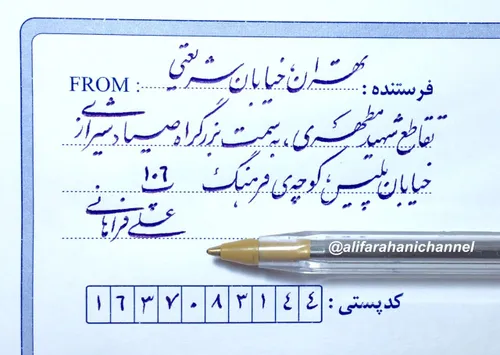 فرستنده : تهران، خیابان شریعتی FROM :
تقاطع شهید مطهری، به سمت بزرگراه صیاد شیرازی
خیابان پلیس، کوچه‌ی فرهنگ پ ۱۰۶
علی فراهانی
@alifarahanichannel
کدپستی : ۱۶۳۷۰۸۳۱۴۴